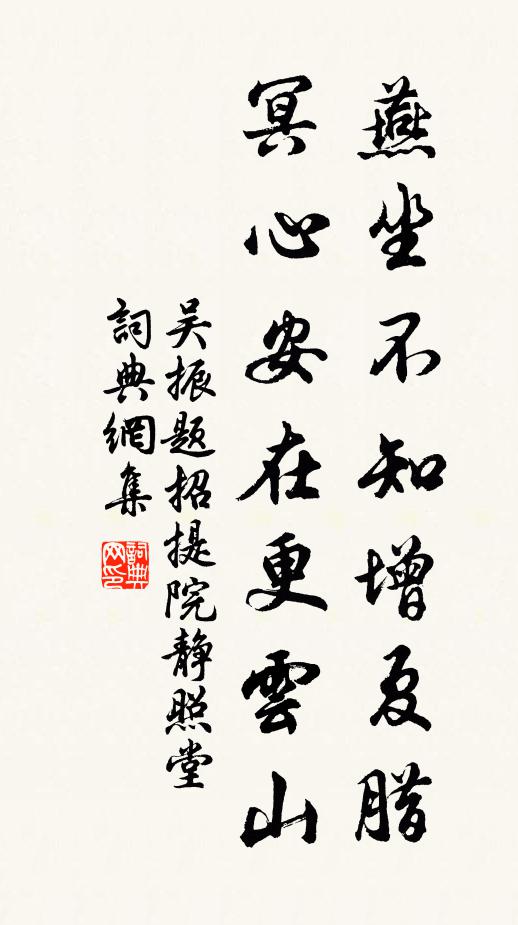 燕坐不知增夏腊
冥心安在更雲山
吴振题招提院静照堂
詞典網集
詞典网印